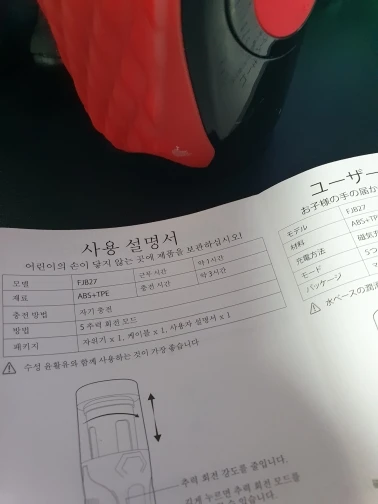 사용 설명서
어린이의 손이 닿지 않는 곳에 제품을 보관하십시오!
모델 FJB27 근무 시간 약 1시간
재료 ABS+TPE 충전 시간 약 3시간
충전 방법 자기 충전
방법 5 추력 회전 모드
패키지 자위기 x 1, 케이블 x 1, 사용자 설명서 x 1
수성 윤활유와 함께 사용하는 것이 가장 좋습니다
추력 회전 강도를 줄입니다.
길게 누르면 추력 회전 모드를
ユーザー
お子様の手の届か
モデル FJB27
材料 ABS+TP
充電方法 磁気充
モード 5つ
パッケージ
水ベースの潤滑